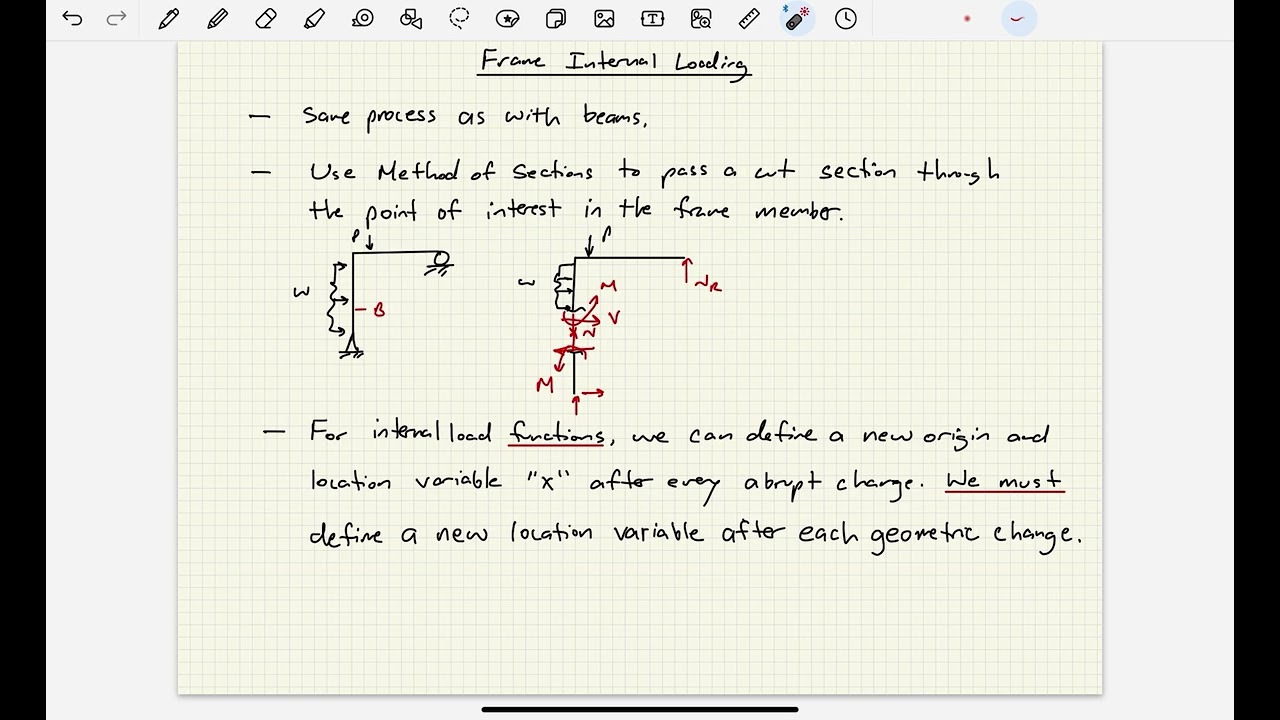 Frame Internal Loading
— Same process as with beams.
— Use Method of Sections to pass a cut section through
the point of interest in the frame member.
P
P
w
B
w
M
V
N
VR
M
— For internal load functions, we can define a new origin and
location variable "x" after every abrupt change. We must
define a new location variable after each geometric change.